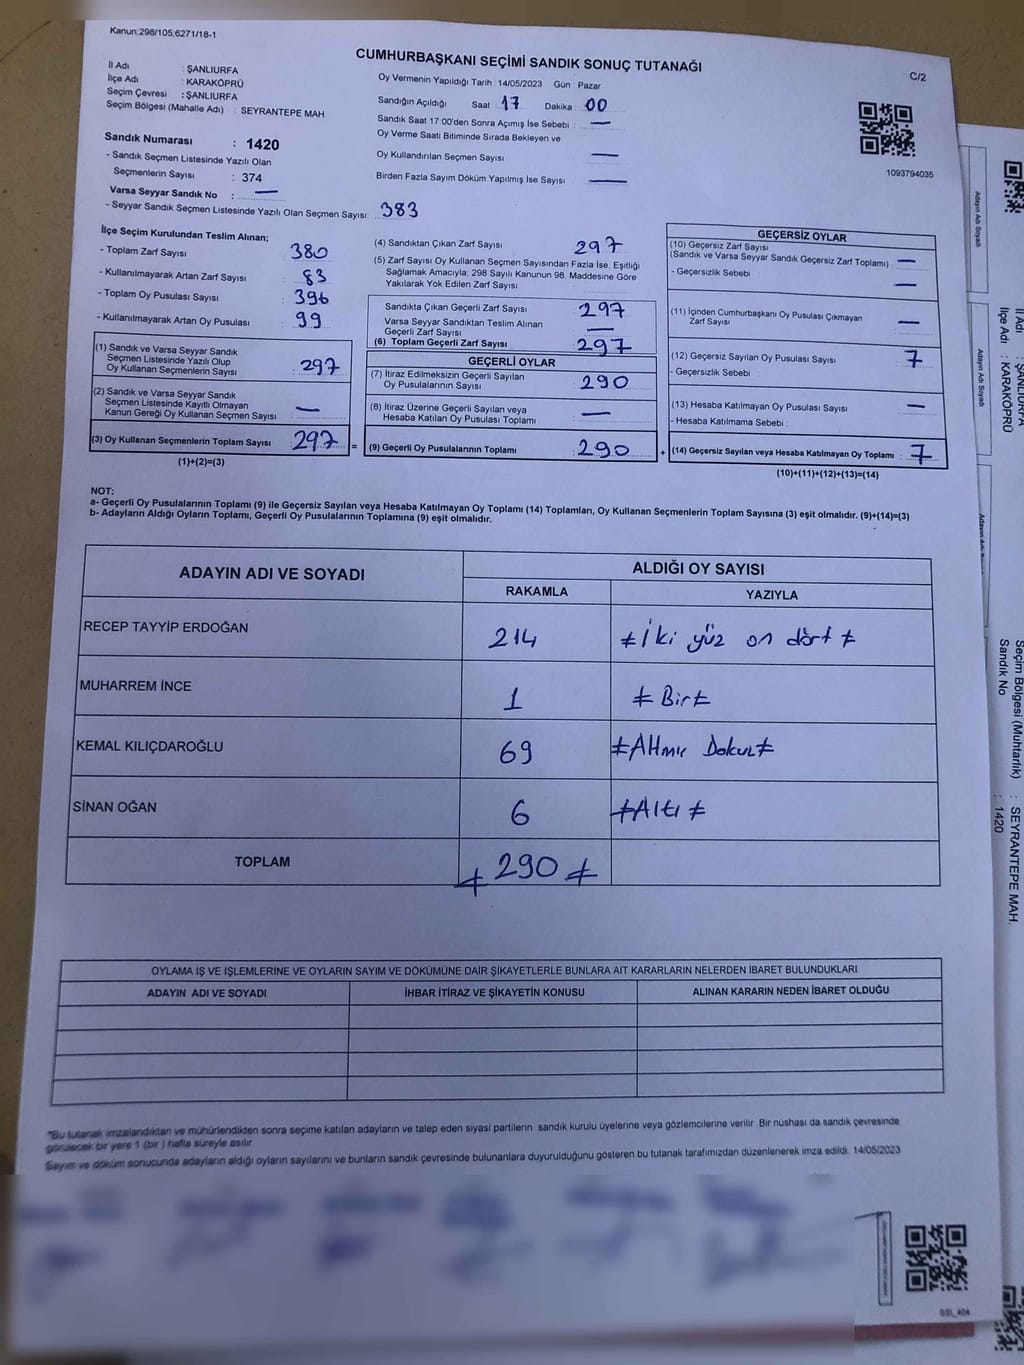 Kanun:298/105,6271/18-1
CUMHURBAŞKANI SEÇİMİ SANDIK SONUÇ TUTANAĞI
C/2
İl Adı : ŞANLIURFA
İlçe Adı : KARAKÖPRÜ
Seçim Çevresi : ŞANLIURFA
Seçim Bölgesi (Mahalle Adı) : SEYRANTEPE MAH.
Oy Vermenin Yapıldığı Tarih :14/05/2023 Gün : Pazar
Sandığın Açıldığı Saat 17 Dakika : 00
Sandık Saat 17:00'den Sonra Açımış İse Sebebi : —
Oy Verme Saati Bitiminde Sırada Bekleyen ve
Oy Kullandırılan Seçmen Sayısı —
Birden Fazla Sayım Döküm Yapılmış İse Sayısı : —
1093794035
Sandık Numarası : 1420
- Sandık Seçmen Listesinde Yazılı Olan
Seçmenlerin Sayısı : 374
Varsa Seyyar Sandık No : —
- Seyyar Sandık Seçmen Listesinde Yazılı Olan Seçmen Sayısı: 383
İlçe Seçim Kurulundan Teslim Alınan;
- Toplam Zarf Sayısı : 380
- Kullanılmayarak Artan Zarf Sayısı : 83
- Toplam Oy Pusulası Sayısı : 396
- Kullanılmayarak Artan Oy Pusulası : 99
(1) Sandık ve Varsa Seyyar Sandık
Seçmen Listesinde Yazılı Olup
Oy Kullanan Seçmenlerin Sayısı : 297
(2) Sandık ve Varsa Seyyar Sandık
Seçmen Listesinde Kayıtlı Olmayan
Kanun Gereği Oy Kullanan Seçmen Sayısı : —
(3) Oy Kullanan Seçmenlerin Toplam Sayısı : 297 =
(1)+(2)=(3)
(4) Sandıktan Çıkan Zarf Sayısı : 297
(5) Zarf Sayısı Oy Kullanan Seçmen Sayısından Fazla İse, Eşitliği
Sağlamak Amacıyla; 298 Sayılı Kanunun 98. Maddesine Göre
Yakılarak Yok Edilen Zarf Sayısı :
Sandıkta Çıkan Geçerli Zarf Sayısı : 297
Varsa Seyyar Sandıktan Teslim Alınan
Geçerli Zarf Sayısı : —
(6) Toplam Geçerli Zarf Sayısı : 297
GEÇERLİ OYLAR
(7) İtiraz Edilmeksizin Geçerli Sayılan
Oy Pusulalarının Sayısı : 290
(8) İtiraz Üzerine Geçerli Sayılan veya
Hesaba Katılan Oy Pusulaları Toplamı : —
(9) Geçerli Oy Pusulalarının Toplamı : 290 +
GEÇERSİZ OYLAR
(10) Geçersiz Zarf Sayısı
(Sandık ve Varsa Seyyar Sandık Geçersiz Zarf Toplamı) : —
- Geçersizlik Sebebi : —
(11) İçinden Cumhurbaşkanı Oy Pusulası Çıkmayan
Zarf Sayısı : —
(12) Geçersiz Sayılan Oy Pusulası Sayısı : 7
- Geçersizlik Sebebi :
(13) Hesaba Katılmayan Oy Pusulası Sayısı : —
- Hesaba Katılmama Sebebi :
(14) Geçersiz Sayılan veya Hesaba Katılmayan Oy Toplamı : 7
(10)+(11)+(12)+(13)=(14)
NOT:
a- Geçerli Oy Pusulalarının Toplamı (9) ile Geçersiz Sayılan veya Hesaba Katılmayan Oy Toplamı (14) Toplamları, Oy Kullanan Seçmenlerin Toplam Sayısına (3) eşit olmalıdır. (9)+(14)=(3)
b- Adayların Aldığı Oyların Toplamı, Geçerli Oy Pusulalarının Toplamına (9) eşit olmalıdır.
ADAYIN ADI VE SOYADI ALDIĞI OY SAYISI
RAKAMLA YAZIYLA
RECEP TAYYİP ERDOĞAN 214 ≠ İki yüz on dört ≠
MUHARREM İNCE 1 ≠ Bir ≠
KEMAL KILIÇDAROĞLU 69 ≠ Altmış Dokuz ≠
SİNAN OĞAN 6 ≠ Altı ≠
TOPLAM ≠ 290 ≠
OYLAMA İŞ VE İŞLEMLERİNE VE OYLARIN SAYIM VE DÖKÜMÜNE DAİR ŞİKAYETLERLE BUNLARA AİT KARARLARIN NELERDEN İBARET BULUNDUKLARI
ADAYIN ADI VE SOYADI İHBAR İTİRAZ VE ŞİKAYETİN KONUSU ALINAN KARARIN NEDEN İBARET OLDUĞU
*Bu tutanak imzalandıktan ve mühürlendikten sonra seçime katılan adayların ve talep eden siyasi partilerin sandık kurulu üyelerine veya gözlemcilerine verilir. Bir nüshası da sandık çevresinde
görülecek bir yere 1 (bir ) hafta süreyle asılır.
Sayım ve döküm sonucunda adayların aldığı oyların sayılarını ve bunların sandık çevresinde bulunanlara duyurulduğunu gösteren bu tutanak tarafımızdan düzenlenerek imza edildi. 14/05/2023
Adayın Adı Soyadı
Adayın Adı Soyadı
İl Adı : ŞANLIURFA
İlçe Adı : KARAKÖPRÜ
Seçim Bölgesi (Muhtarlık) : SEYRANTEPE MAH.
Sandık No : 1420